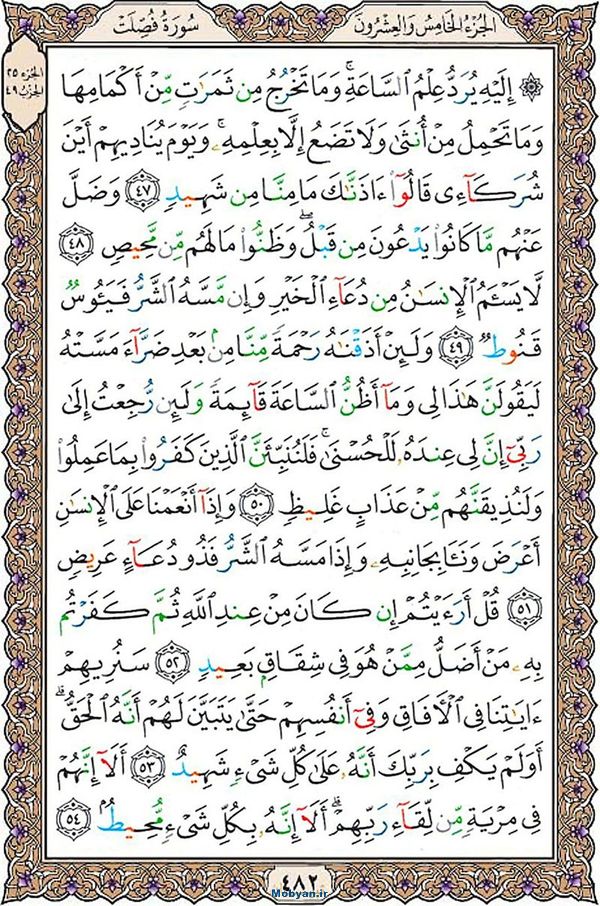 الجزء الخامس والعشرون
سورة فصلت
الجزء ٢٥
الحزب ٤٩
۞ إِلَيْهِ يُرَدُّ عِلْمُ ٱلسَّاعَةِ ۚ وَمَا تَخْرُجُ مِن ثَمَرَٰتٍ مِّنْ أَكْمَامِهَا
وَمَا تَحْمِلُ مِنْ أُنثَىٰ وَلَا تَضَعُ إِلَّا بِعِلْمِهِۦ ۚ وَيَوْمَ يُنَادِيهِمْ أَيْنَ
شُرَكَآءِى قَالُوٓا۟ ءَاذَنَّٰكَ مَا مِنَّا مِن شَهِيدٍ ٤٧ وَضَلَّ
عَنْهُم مَّا كَانُوا۟ يَدْعُونَ مِن قَبْلُ ۖ وَظَنُّوا۟ مَا لَهُم مِّن مَّحِيصٍ ٤٨
لَّا يَسْـَٔمُ ٱلْإِنسَٰنُ مِن دُعَآءِ ٱلْخَيْرِ وَإِن مَّسَّهُ ٱلشَّرُّ فَيَـُٔوسٌ
قَنُوطٌ ٤٩ وَلَئِنْ أَذَقْنَٰهُ رَحْمَةً مِّنَّا مِنۢ بَعْدِ ضَرَّآءَ مَسَّتْهُ
لَيَقُولَنَّ هَٰذَا لِى وَمَآ أَظُنُّ ٱلسَّاعَةَ قَآئِمَةً وَلَئِن رُّجِعْتُ إِلَىٰ
رَبِّىٓ إِنَّ لِى عِندَهُۥ لَلْحُسْنَىٰ ۚ فَلَنُنَبِّئَنَّ ٱلَّذِينَ كَفَرُوا۟ بِمَا عَمِلُوا۟
وَلَنُذِيقَنَّهُم مِّنْ عَذَابٍ غَلِيظٍ ٥٠ وَإِذَآ أَنْعَمْنَا عَلَى ٱلْإِنسَٰنِ
أَعْرَضَ وَنَـَٔا بِجَانِبِهِۦ وَإِذَا مَسَّهُ ٱلشَّرُّ فَذُو دُعَآءٍ عَرِيضٍ
٥١ قُلْ أَرَءَيْتُمْ إِن كَانَ مِنْ عِندِ ٱللَّهِ ثُمَّ كَفَرْتُم
بِهِۦ مَنْ أَضَلُّ مِمَّنْ هُوَ فِى شِقَاقٍۭ بَعِيدٍ ٥٢ سَنُرِيهِمْ
ءَايَٰتِنَا فِى ٱلْـَٔافَاقِ وَفِىٓ أَنفُسِهِمْ حَتَّىٰ يَتَبَيَّنَ لَهُمْ أَنَّهُ ٱلْحَقُّ ۗ
أَوَلَمْ يَكْفِ بِرَبِّكَ أَنَّهُۥ عَلَىٰ كُلِّ شَىْءٍ شَهِيدٌ ٥٣ أَلَآ إِنَّهُمْ
فِى مِرْيَةٍ مِّن لِّقَآءِ رَبِّهِمْ ۗ أَلَآ إِنَّهُۥ بِكُلِّ شَىْءٍ مُّحِيطٌۢ ٥٤
٤٨٢
Mobyan.ir